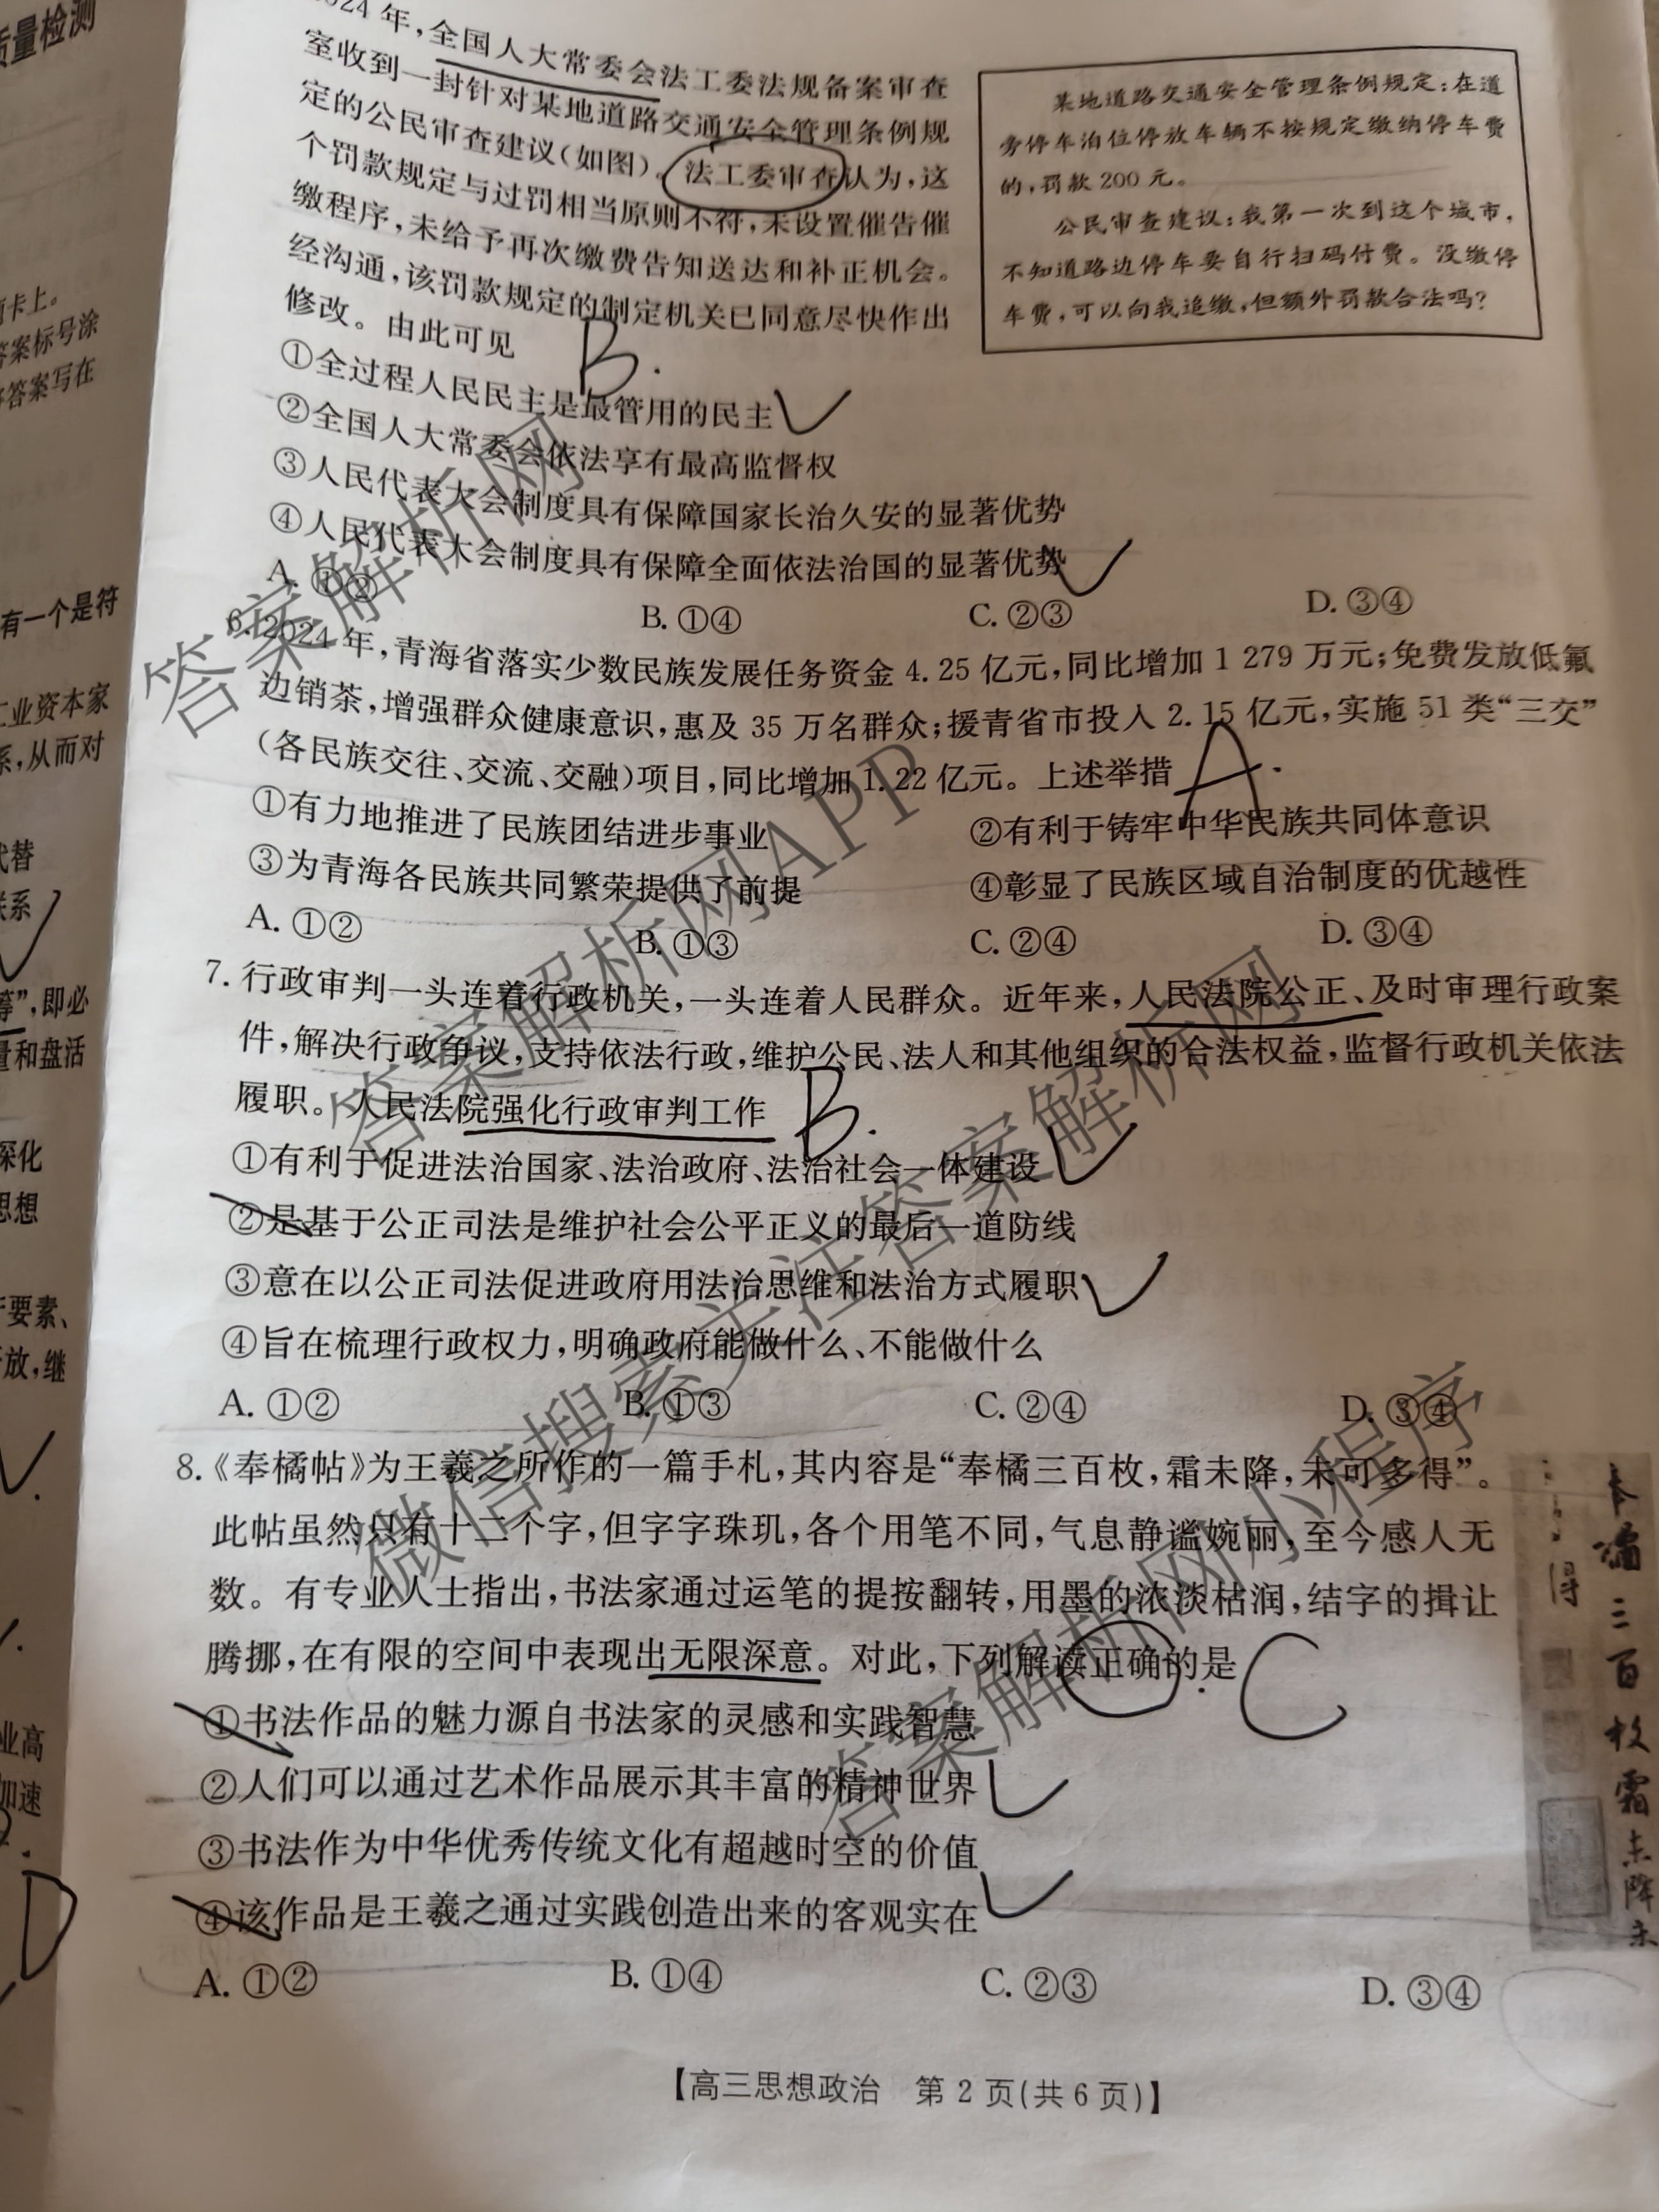 质量检测
024年,全国人大常委会法工委法规备案审查
室收到一封针对某地道路交通安全管理条例规
定的公民审查建议(如图)。法工委审查认为,这
个罚款规定与过罚相当原则不符,未设置催告催
缴程序,未给予再次缴费告知送达和补正机会。
经沟通,该罚款规定的制定机关已同意尽快作出
修改。由此可见
B.
某地道路交通安全管理条例规定:在道
旁停车泊位停放车辆不按规定缴纳停车费
的,罚款200元。
公民审查建议:我第一次到这个城市,
不知道路边停车要自行扫码付费。没缴停
车费,可以向我追缴,但额外罚款合法吗?
①全过程人民民主是最管用的民主
②全国人大常委会依法享有最高监督权
③人民代表大会制度具有保障国家长治久安的显著优势
④人民代表大会制度具有保障全面依法治国的显著优势
A. ①② B. ①④ C. ②③ D. ③④
6. 2024年,青海省落实少数民族发展任务资金4.25亿元,同比增加1 279万元;免费发放低氟
边销茶,增强群众健康意识,惠及35万名群众;援青省市投入2.15亿元,实施51类“三交”
(各民族交往、交流、交融)项目,同比增加1.22亿元。上述举措
A.
①有力地推进了民族团结进步事业 ②有利于铸牢中华民族共同体意识
③为青海各民族共同繁荣提供了前提 ④彰显了民族区域自治制度的优越性
A. ①② B. ①③ C. ②④ D. ③④
7. 行政审判一头连着行政机关,一头连着人民群众。近年来,人民法院公正、及时审理行政案
件,解决行政争议,支持依法行政,维护公民、法人和其他组织的合法权益,监督行政机关依法
履职。人民法院强化行政审判工作
B.
①有利于促进法治国家、法治政府、法治社会一体建设
②是基于公正司法是维护社会公平正义的最后一道防线
③意在以公正司法促进政府用法治思维和法治方式履职
④旨在梳理行政权力,明确政府能做什么、不能做什么
A. ①② B. ①③ C. ②④ D. ③④
8.《奉橘帖》为王羲之所作的一篇手札,其内容是“奉橘三百枚,霜未降,未可多得”。
此帖虽然只有十二个字,但字字珠玑,各个用笔不同,气息静谧婉丽,至今感人无
数。有专业人士指出,书法家通过运笔的提按翻转,用墨的浓淡枯润,结字的揖让
腾挪,在有限的空间中表现出无限深意。对此,下列解读正确的是
C
①书法作品的魅力源自书法家的灵感和实践智慧
②人们可以通过艺术作品展示其丰富的精神世界
③书法作为中华优秀传统文化有超越时空的价值
④该作品是王羲之通过实践创造出来的客观实在
A. ①② B. ①④ C. ②③ D. ③④
奉橘三百枚霜未降未
得
【高三思想政治 第2页(共6页)】
卡上。
答案标号涂
答案写在
有一个是符
工业资本家
系,从而对
代替
联系
等”,即必
量和盘活
深化
思想
要素、
放,继
业高
加速
D
答案解析网
答案解析网APP
微信搜索关注答案解析网
答案解析网小程序